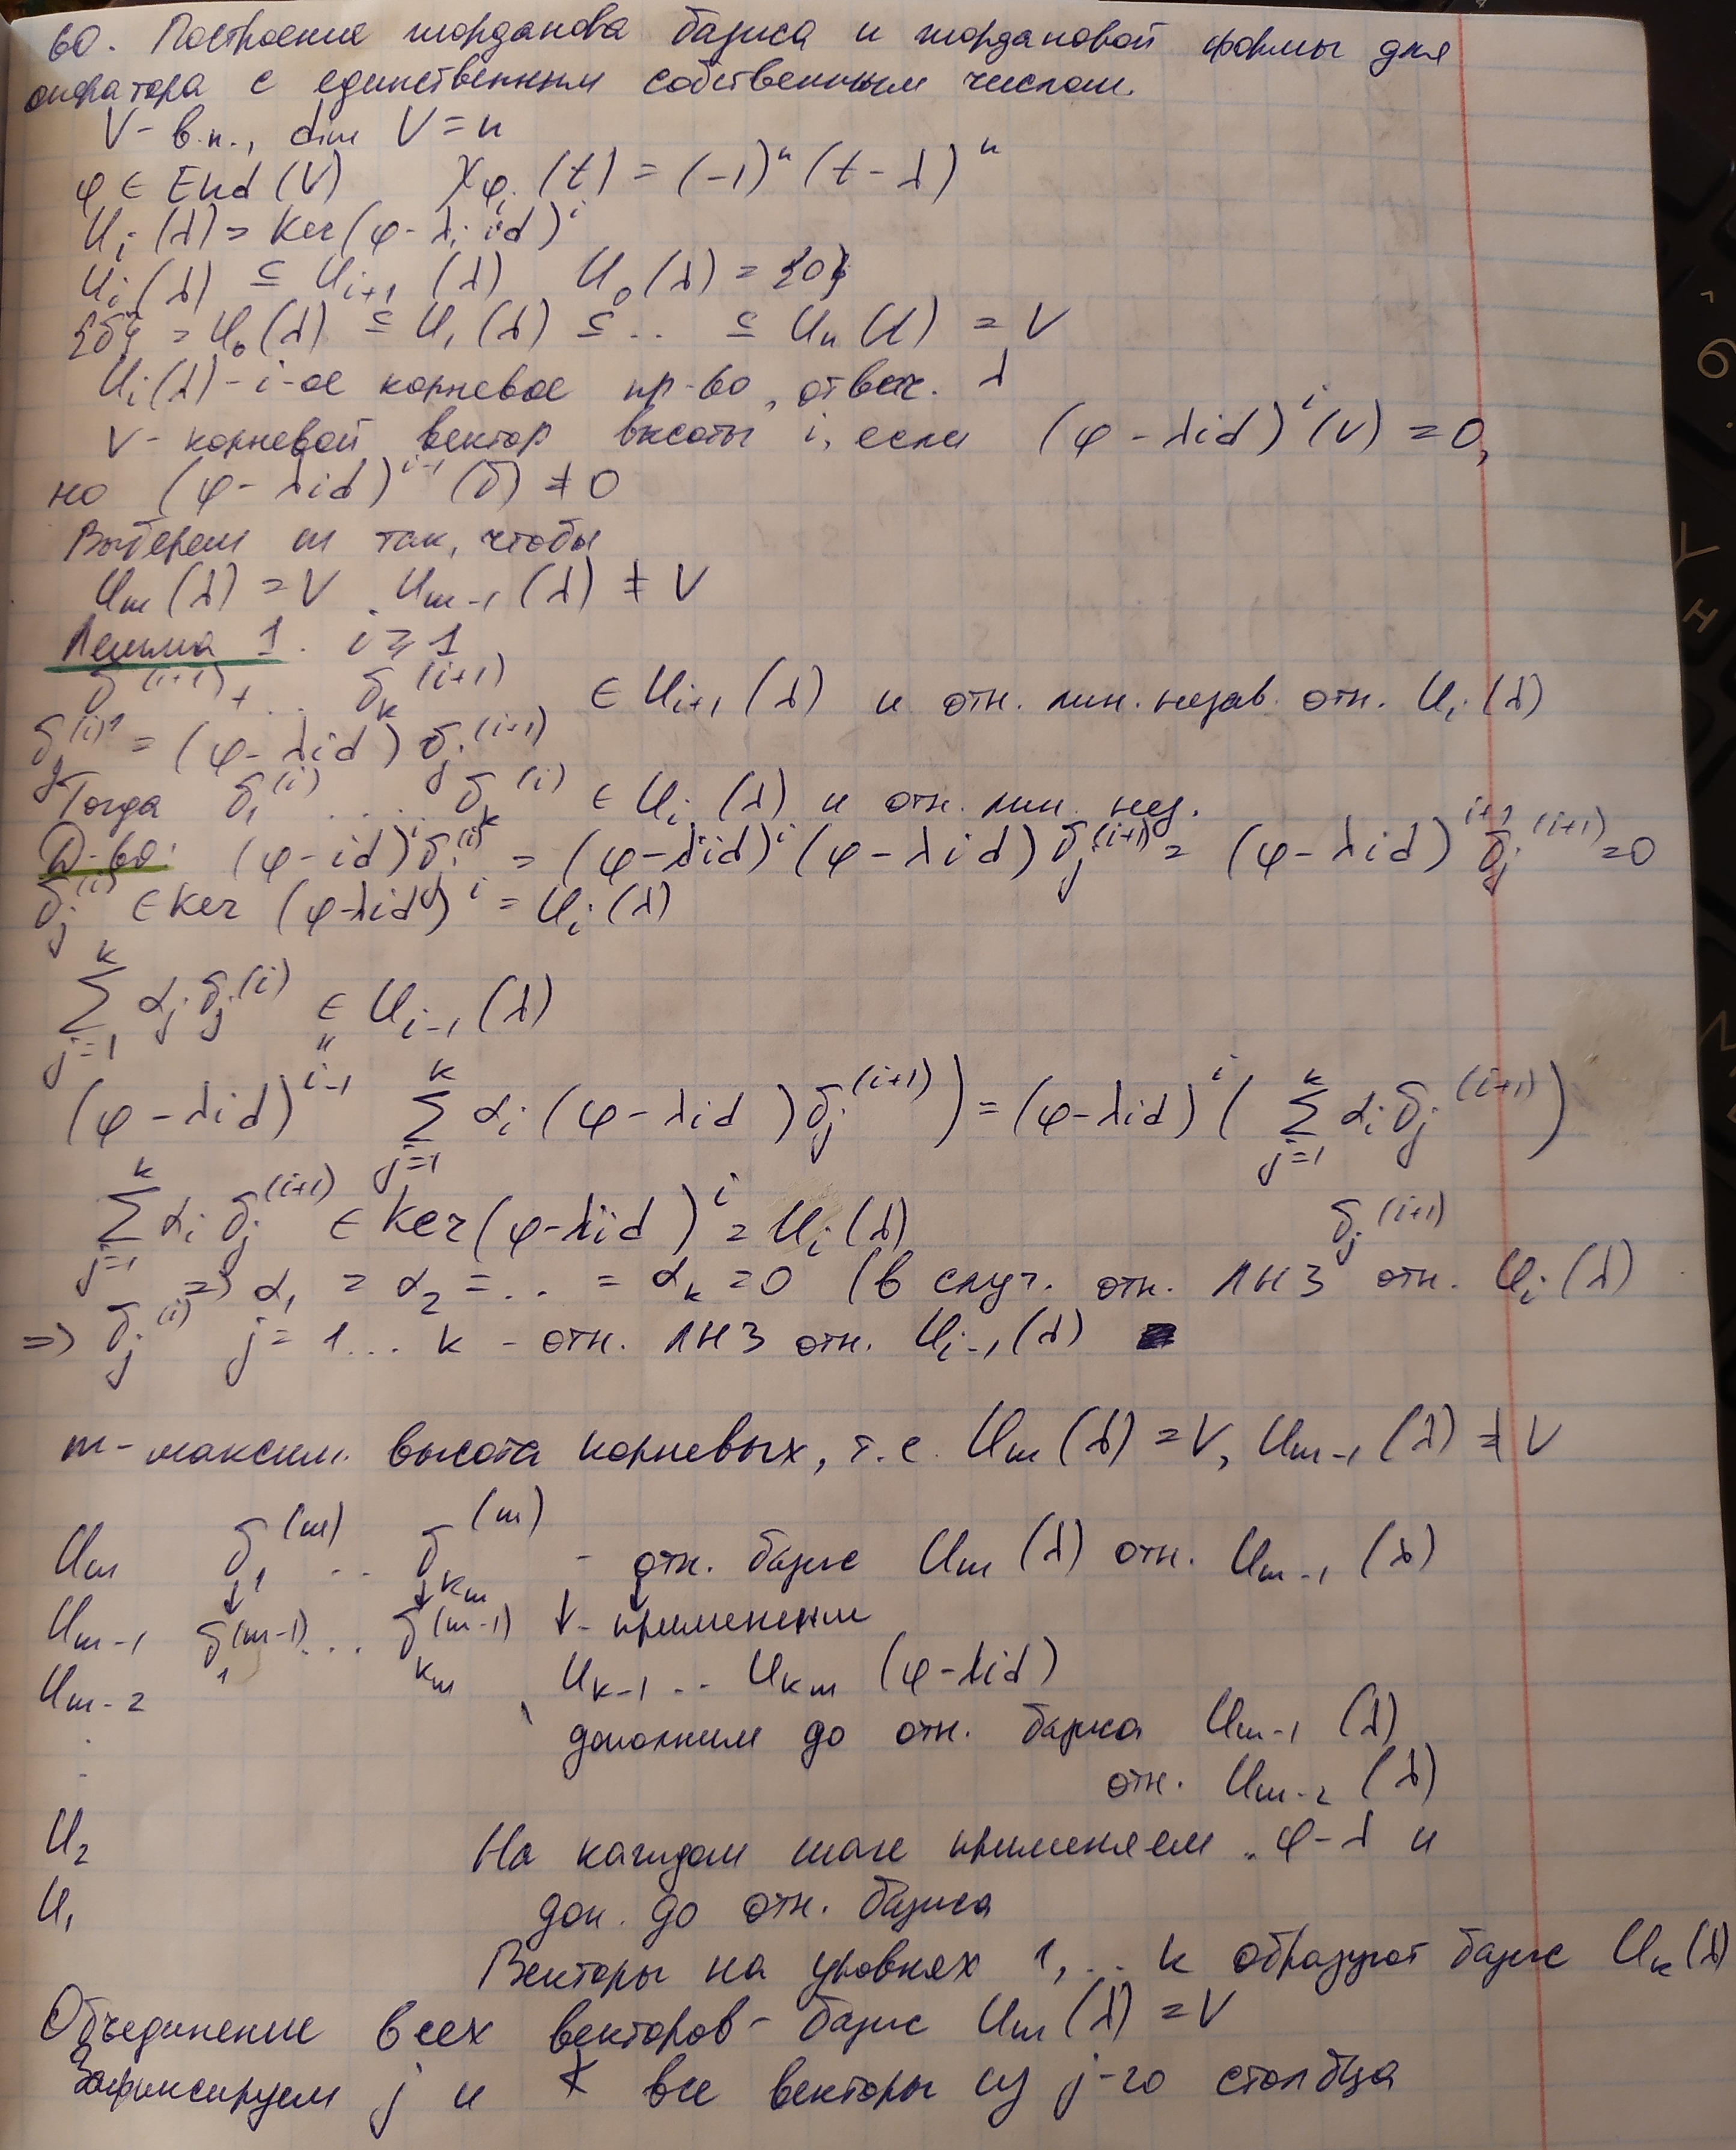 60. Построение жорданова базиса и жордановой формы для
оператора с единственным собственным числом.
V - в.п., dim V = n
φ ∈ End (V) χ_φ (t) = (-1)^n (t - λ)^n
U_i (λ) = Ker (φ - λ id)^i
U_i (λ) ⊆ U_{i+1} (λ) U_0 (λ) = {0}
{0} = U_0 (λ) ⊆ U_1 (λ) ⊆ ... ⊆ U_n (λ) = V
U_i (λ) - i-ое корневое пр-во, отвеч. λ
V - корневой вектор высоты i, если (φ - λid)^i (v) = 0,
но (φ - λid)^{i-1} (v) ≠ 0
Выберем m так, чтобы
U_m (λ) = V U_{m-1} (λ) ≠ V
Лемма 1. i ≥ 1
v_1^{(i+1)}, ... v_k^{(i+1)} ∈ U_{i+1} (λ) и отн. лин. незав. отн. U_i (λ)
v_j^{(i)} = (φ - λid) v_j^{(i+1)}
Тогда v_1^{(i)} ... v_k^{(i)} ∈ U_i (λ) и отн. лин. нез.
Д-во: (φ - id)^i v_j^{(i)} = (φ - λid)^i (φ - λid) v_j^{(i+1)} = (φ - λid)^{i+1} v_j^{(i+1)} = 0
v_j^{(i)} ∈ Ker (φ - λid)^i = U_i (λ)
∑_{j=1}^k α_j v_j^{(i)} ∈ U_{i-1} (λ)
(φ - λid)^{i-1} ∑_{j=1}^k α_i (φ - λid) v_j^{(i+1)}) = (φ - λid)^i (∑_{j=1}^k α_i v_j^{(i+1)})
∑_{j=1}^k α_i v_j^{(i+1)} ∈ Ker (φ - λid)^i = U_i (λ) v_j^{(i+1)}
=> α_1 = α_2 = ... = α_k = 0 (в случ. отн. ЛНЗ отн. U_i (λ)
=> v_j^{(i)} j = 1 ... k - отн. ЛНЗ отн. U_{i-1} (λ)
m - максим. высота корневых, т.е. U_m (λ) = V, U_{m-1} (λ) ≠ V
U_m v_1^{(m)} ... v_{k_m}^{(m)} - отн. базис U_m (λ) отн. U_{m-1} (λ)
↓ ↓ ↓
U_{m-1} v_1^{(m-1)} ... v_{k_m}^{(m-1)} ↓ - применении
U_{m-2} U_{k-1} .. U_{k_m} (φ - λid)
дополним до отн. базиса U_{m-1} (λ)
отн. U_{m-2} (λ)
U_2 На каждом шаге применяем φ - λ и
U_1 доп. до отн. базиса
Векторы на уровнях 1, ... k образуют базис U_k (λ)
Объединение всех векторов - базис U_m (λ) = V
Зафиксируем j и все векторы из j-го столбца